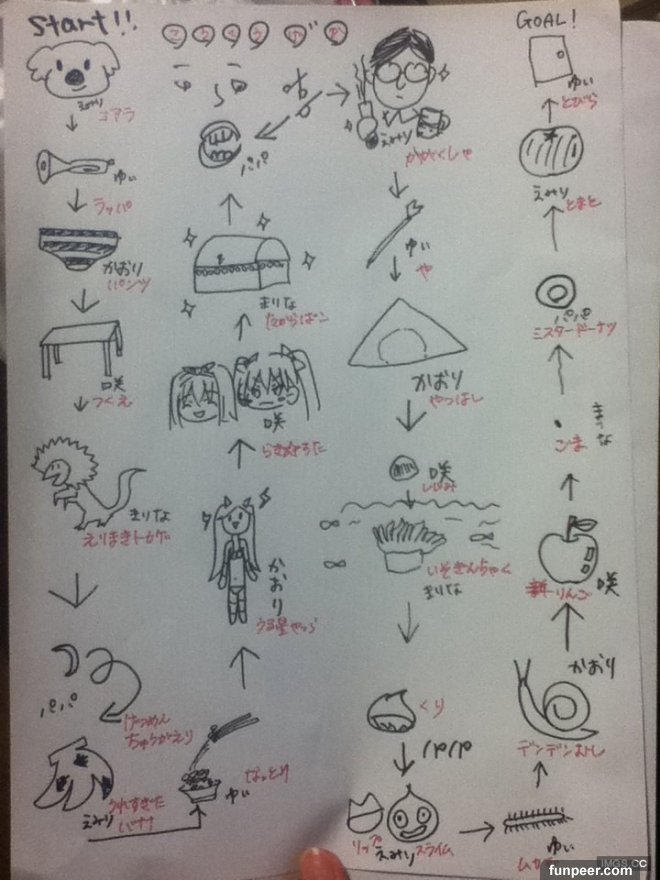 Start!!
えみり
コアラ
ゆい
ラッパ
かおり
パンツ
咲
つくえ
まりな
えりまきトカゲ
パパ
げつめん
ちゅうがえり
えみり
うれすぎた
バナナ
なっとう
ゆい
かおり
うる星やつら
咲
らきすた
まりな
たからばこ
パパ
えみり
かがくしゃ
ゆい
や
かおり
やつはし
咲
しじみ
いそぎんちゃく
まりな
くり
パパ
リップ
えみり
スライム
ゆい
かおり
デンデンむし
咲
りんご
まりな
ごま
パパ
ミスタードーナツ
えみり
とまと
ゆい
とびら
GOAL!
IMGS.CC
funpeer.com